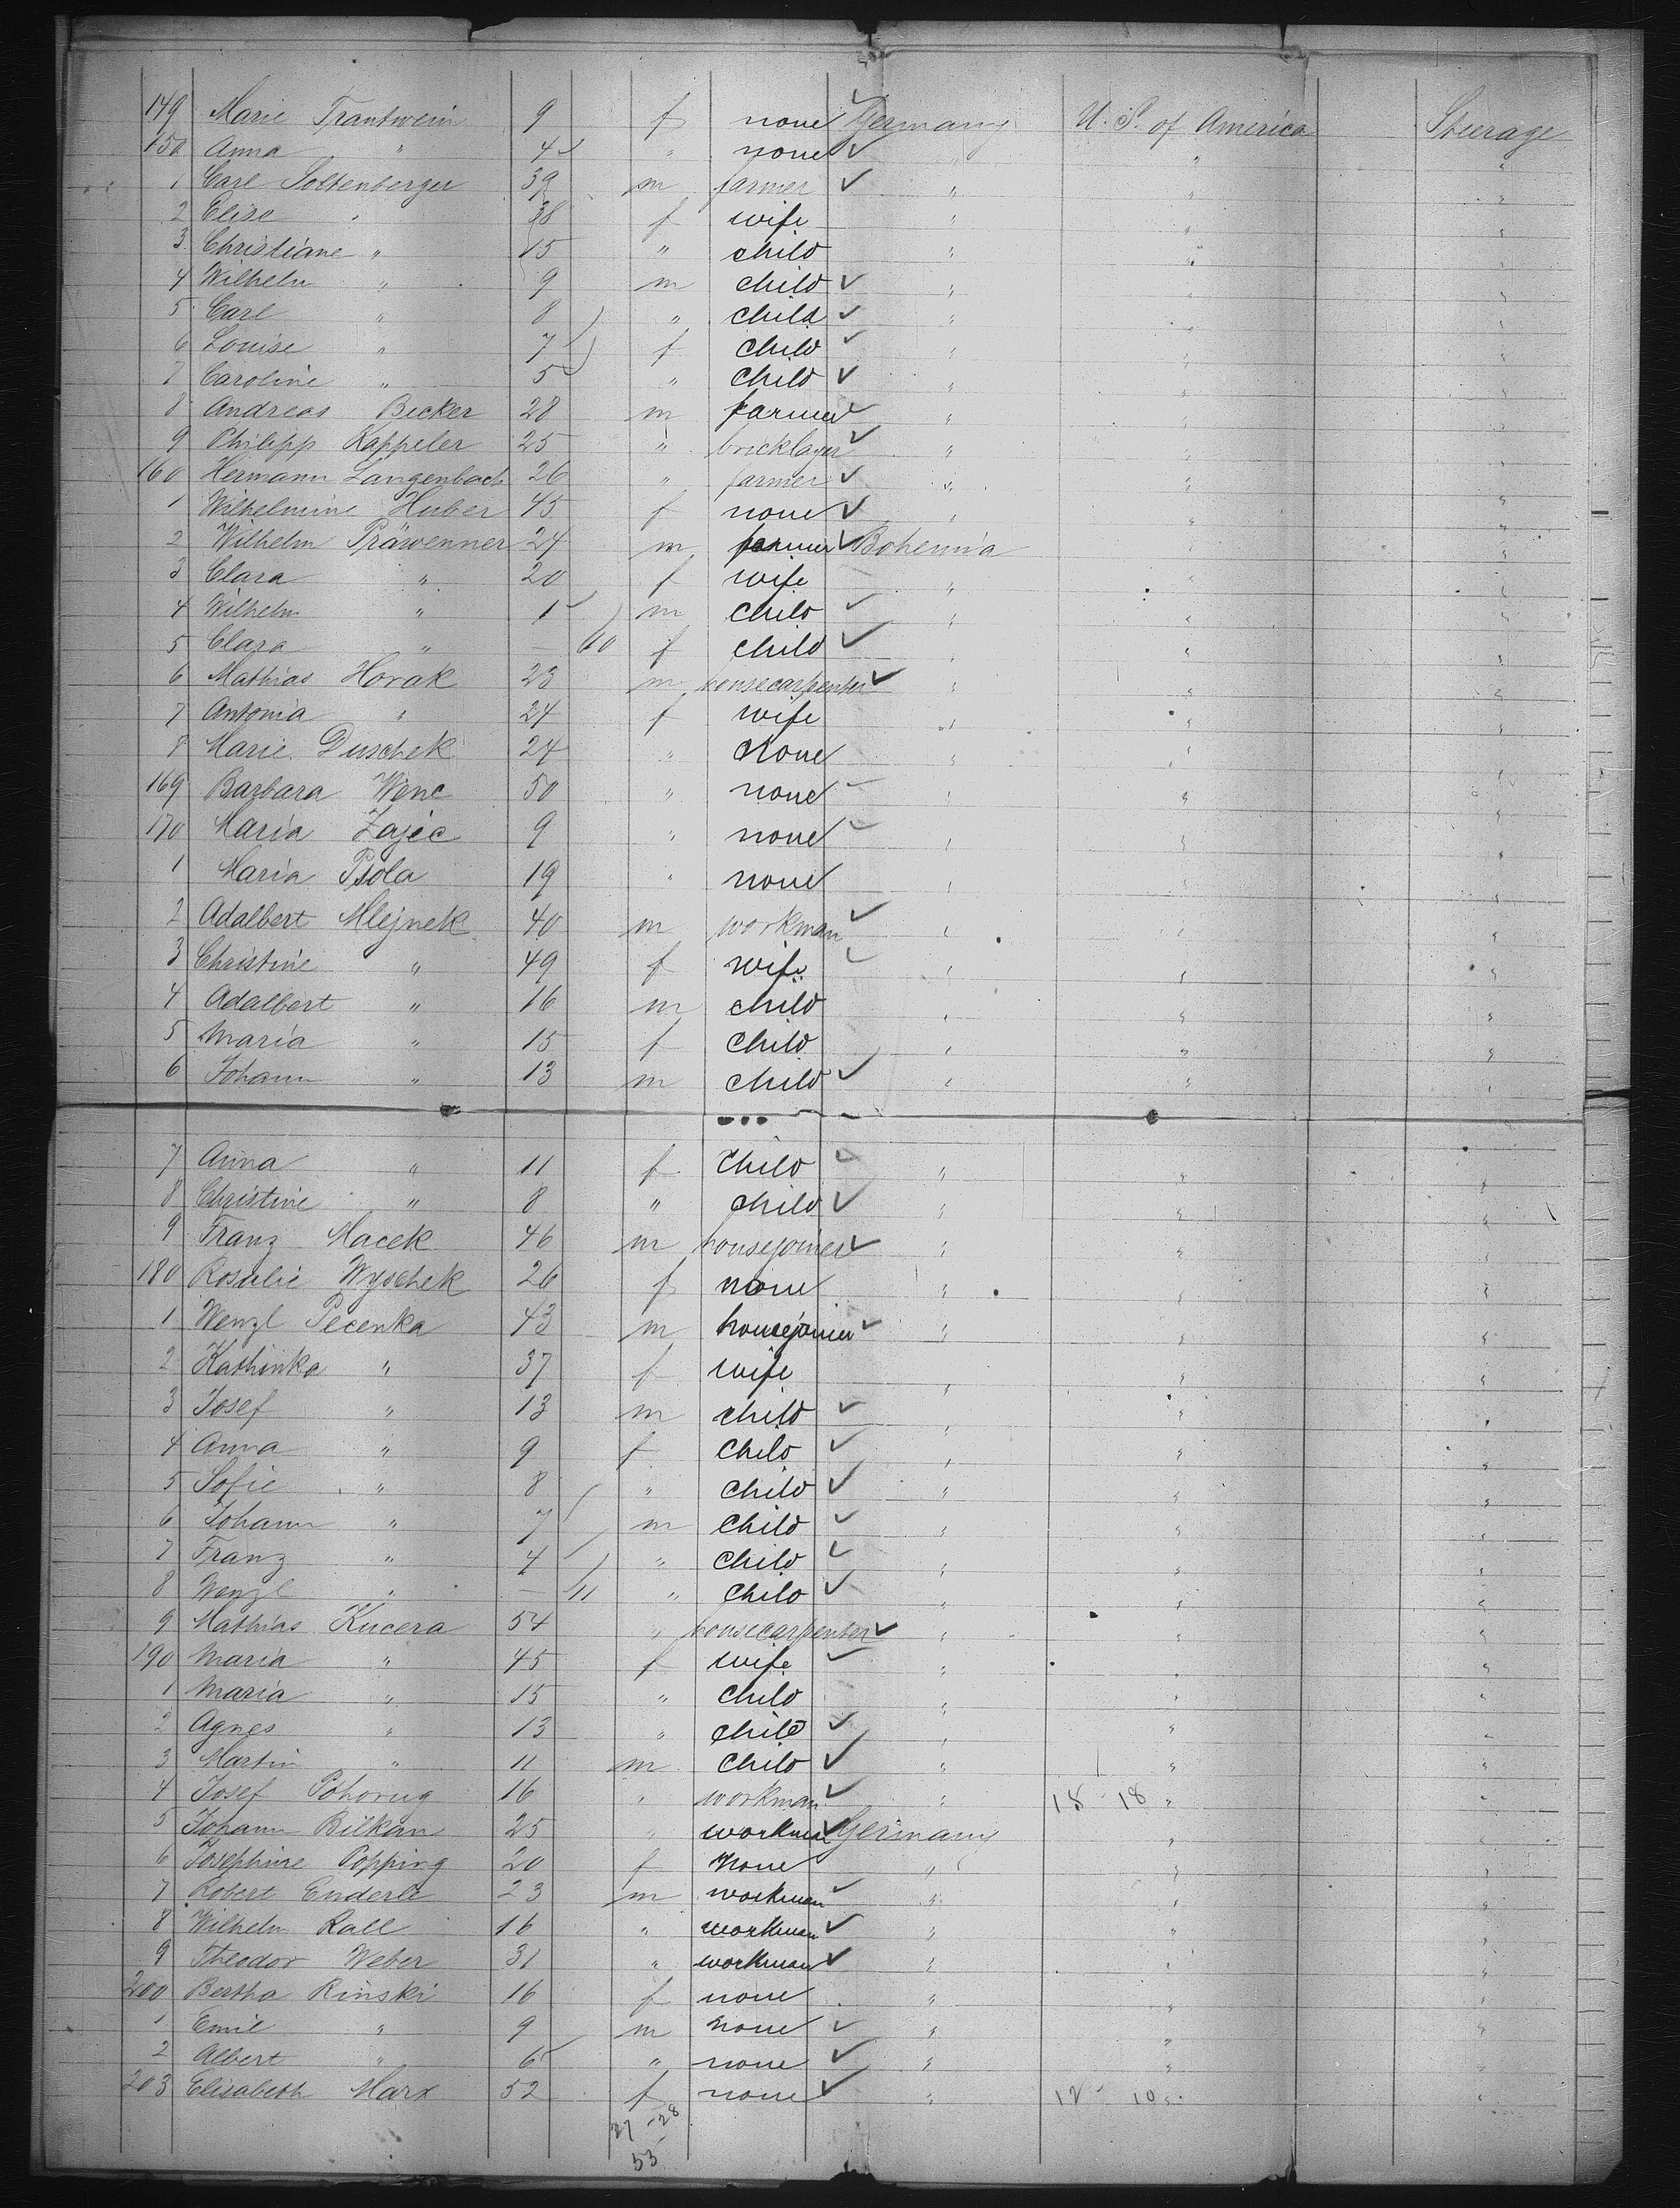 149 Marie Trautwein 9 f none Germany U. S. of America Steerage
150 Anna " 4 " none " " "
1 Carl Soltenberger 39 m farmer " " "
2 Elise " 38 f wife " " "
3 Christiane " 15 " child " " "
4 Wilhelm " 9 m child " " "
5 Carl " 8 " child " " "
6 Louise " 7 f child " " "
7 Caroline " 5 " child " " "
8 Andreas Becker 28 m farmer " " "
9 Philipp Kappeler 25 " bricklayer " " "
160 Hermann Langenbach 26 " farmer " " "
1 Wilhelmine Huber 45 f none " " "
2 Wilhelm Präwenner 24 m farmer Bohemia " "
3 Clara " 20 f wife " " "
4 Wilhelm " 1 m child " " "
5 Clara " — 10 f child " " "
6 Mathias Horak 23 m housecarpenter " " "
7 Antonia " 24 f wife " " "
8 Marie Duschek 24 " none " " "
169 Barbara Wenc 50 " none " " "
170 Maria Zajéc 9 " none " " "
1 Maria Psola 19 " none " " "
2 Adalbert Mlejnek 40 m workman " " "
3 Christine " 49 f wife " " "
4 Adalbert " 16 m child " " "
5 Maria " 15 f child " " "
6 Johann " 13 m child " " "
7 Anna " 11 f child " " "
8 Christine " 8 " child " " "
9 Franz Macek 46 m housejoiner " " "
180 Rosalie Wyschek 26 f none " " "
1 Wenzl Pecenka 43 m housejoiner " " "
2 Kathinka " 37 f wife " " "
3 Josef " 13 m child " " "
4 Anna " 9 f child " " "
5 Sofie " 8 " child " " "
6 Johann " 7 m child " " "
7 Franz " 4 " child " " "
8 Wenzl " — 11 " child " " "
9 Mathias Kucera 54 " housecarpenter " " "
190 Maria " 45 f wife " " "
1 Maria " 15 " child " " "
2 Agnes " 13 " child " " "
3 Martin " 11 m child " " "
4 Josef 16 " workman " 18 18 " "
5 Johann Bilkan 25 " workman Germany " "
6 Josephine Popping 20 f none " " "
7 Robert Enderle 23 m workman " " "
8 Wilhelm Rall 16 " workman " " "
9 Theodor Weber 31 " workman " " "
200 Bertha Rinski 16 f none " " "
1 Emil " 9 m none " " "
2 Albert " 6 " none " " "
203 Elisabeth Marx 52 f none " 12 10 " "
27 - 28
55